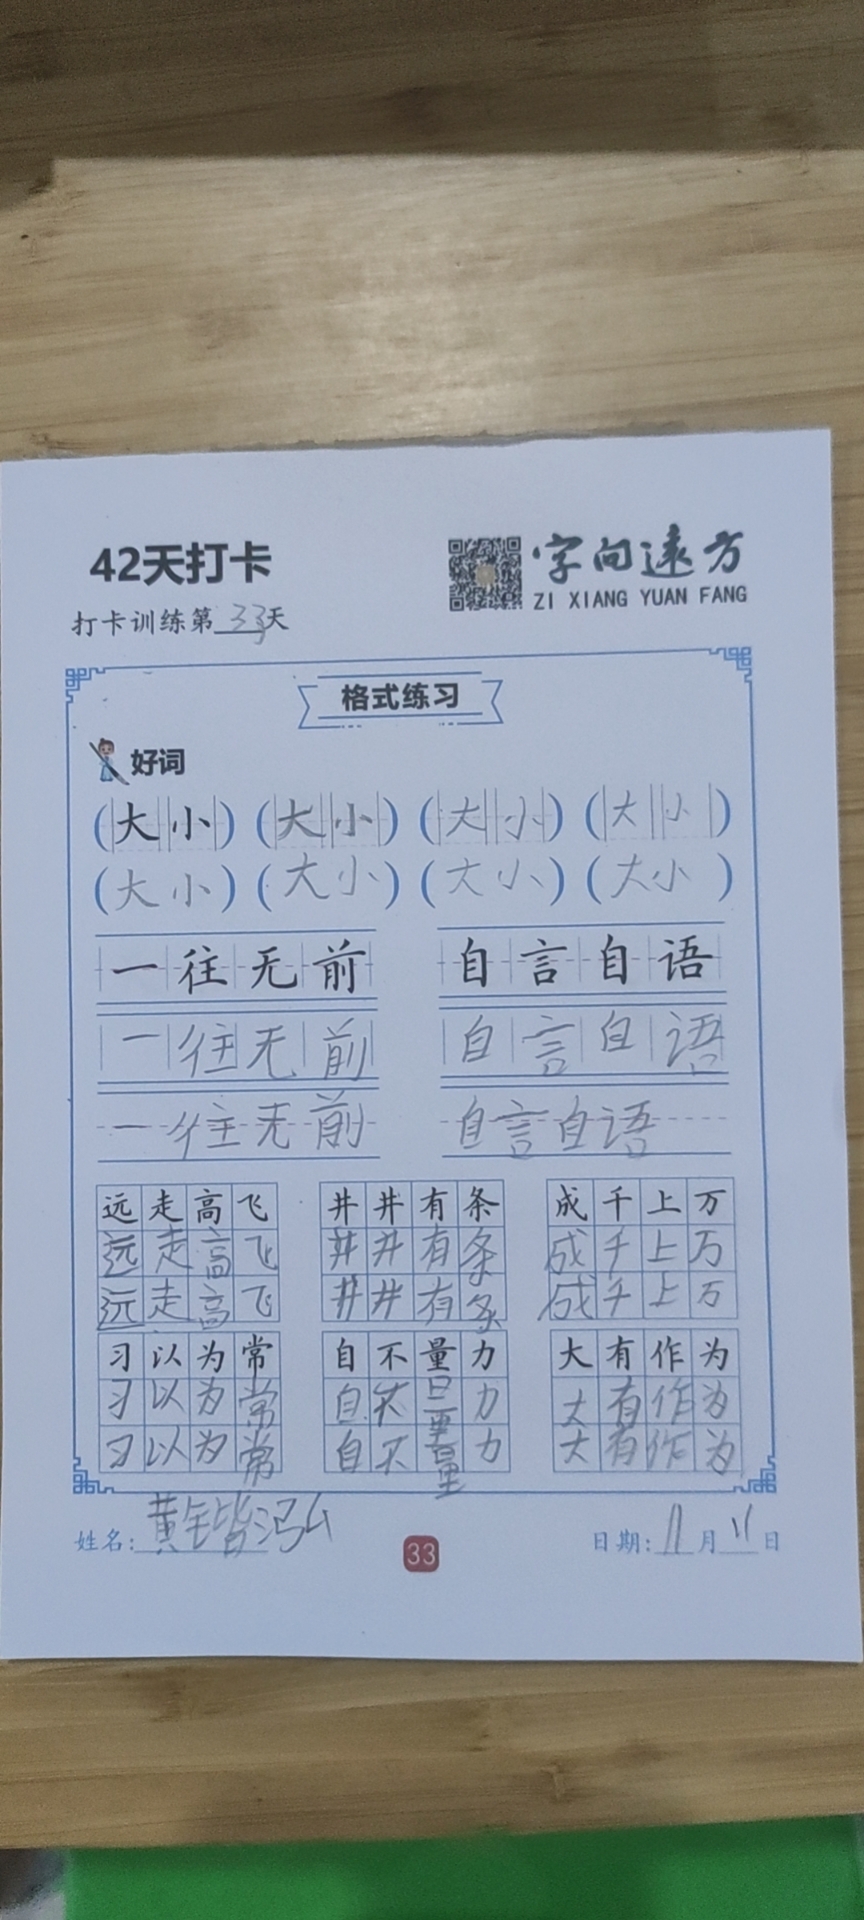 42天打卡
字向远方
ZI XIANG YUAN FANG
打卡训练第33天
格式练习
好词
(大小) (大小) (大小) (大小)
(大小) (大小) (大小) (大小)
一往无前 自言自语
一往无前 自言自语
一往无前 自言自语
远走高飞 井井有条 成千上万
远走高飞 井井有条 成千上万
远走高飞 井井有条 成千上万
习以为常 自不量力 大有作为
习以为常 自不量力 大有作为
习以为常 自不量力 大有作为
姓名:黄锴泓
33
日期:11月11日